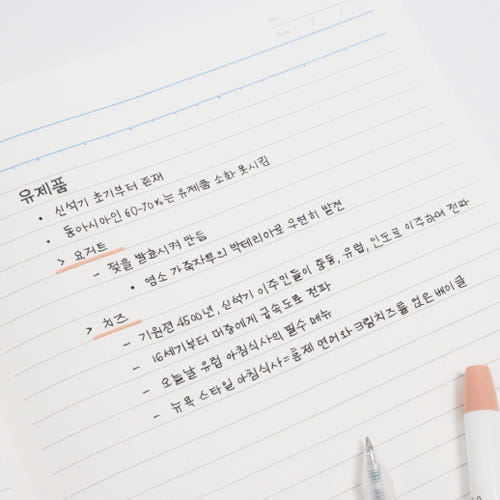 유제품
• 신석기 초기부터 존재
• 동아시아인 60-70%는 유제품 소화 못시킴
> 요거트
- 젖을 발효시켜 만듦
• 염소 가죽자루의 박테리아로 우연히 발견
> 치즈
- 기원전 4500년, 신석기 이주인들이 중동, 유럽, 인도로 이주하며 전파
- 16세기부터 에게 급속도로 전파
- 오늘날 유럽 아침식사의 필수 메뉴
- 뉴욕 스타일 아침식사=훈제 연어와 크림치즈를 얹은 베이글